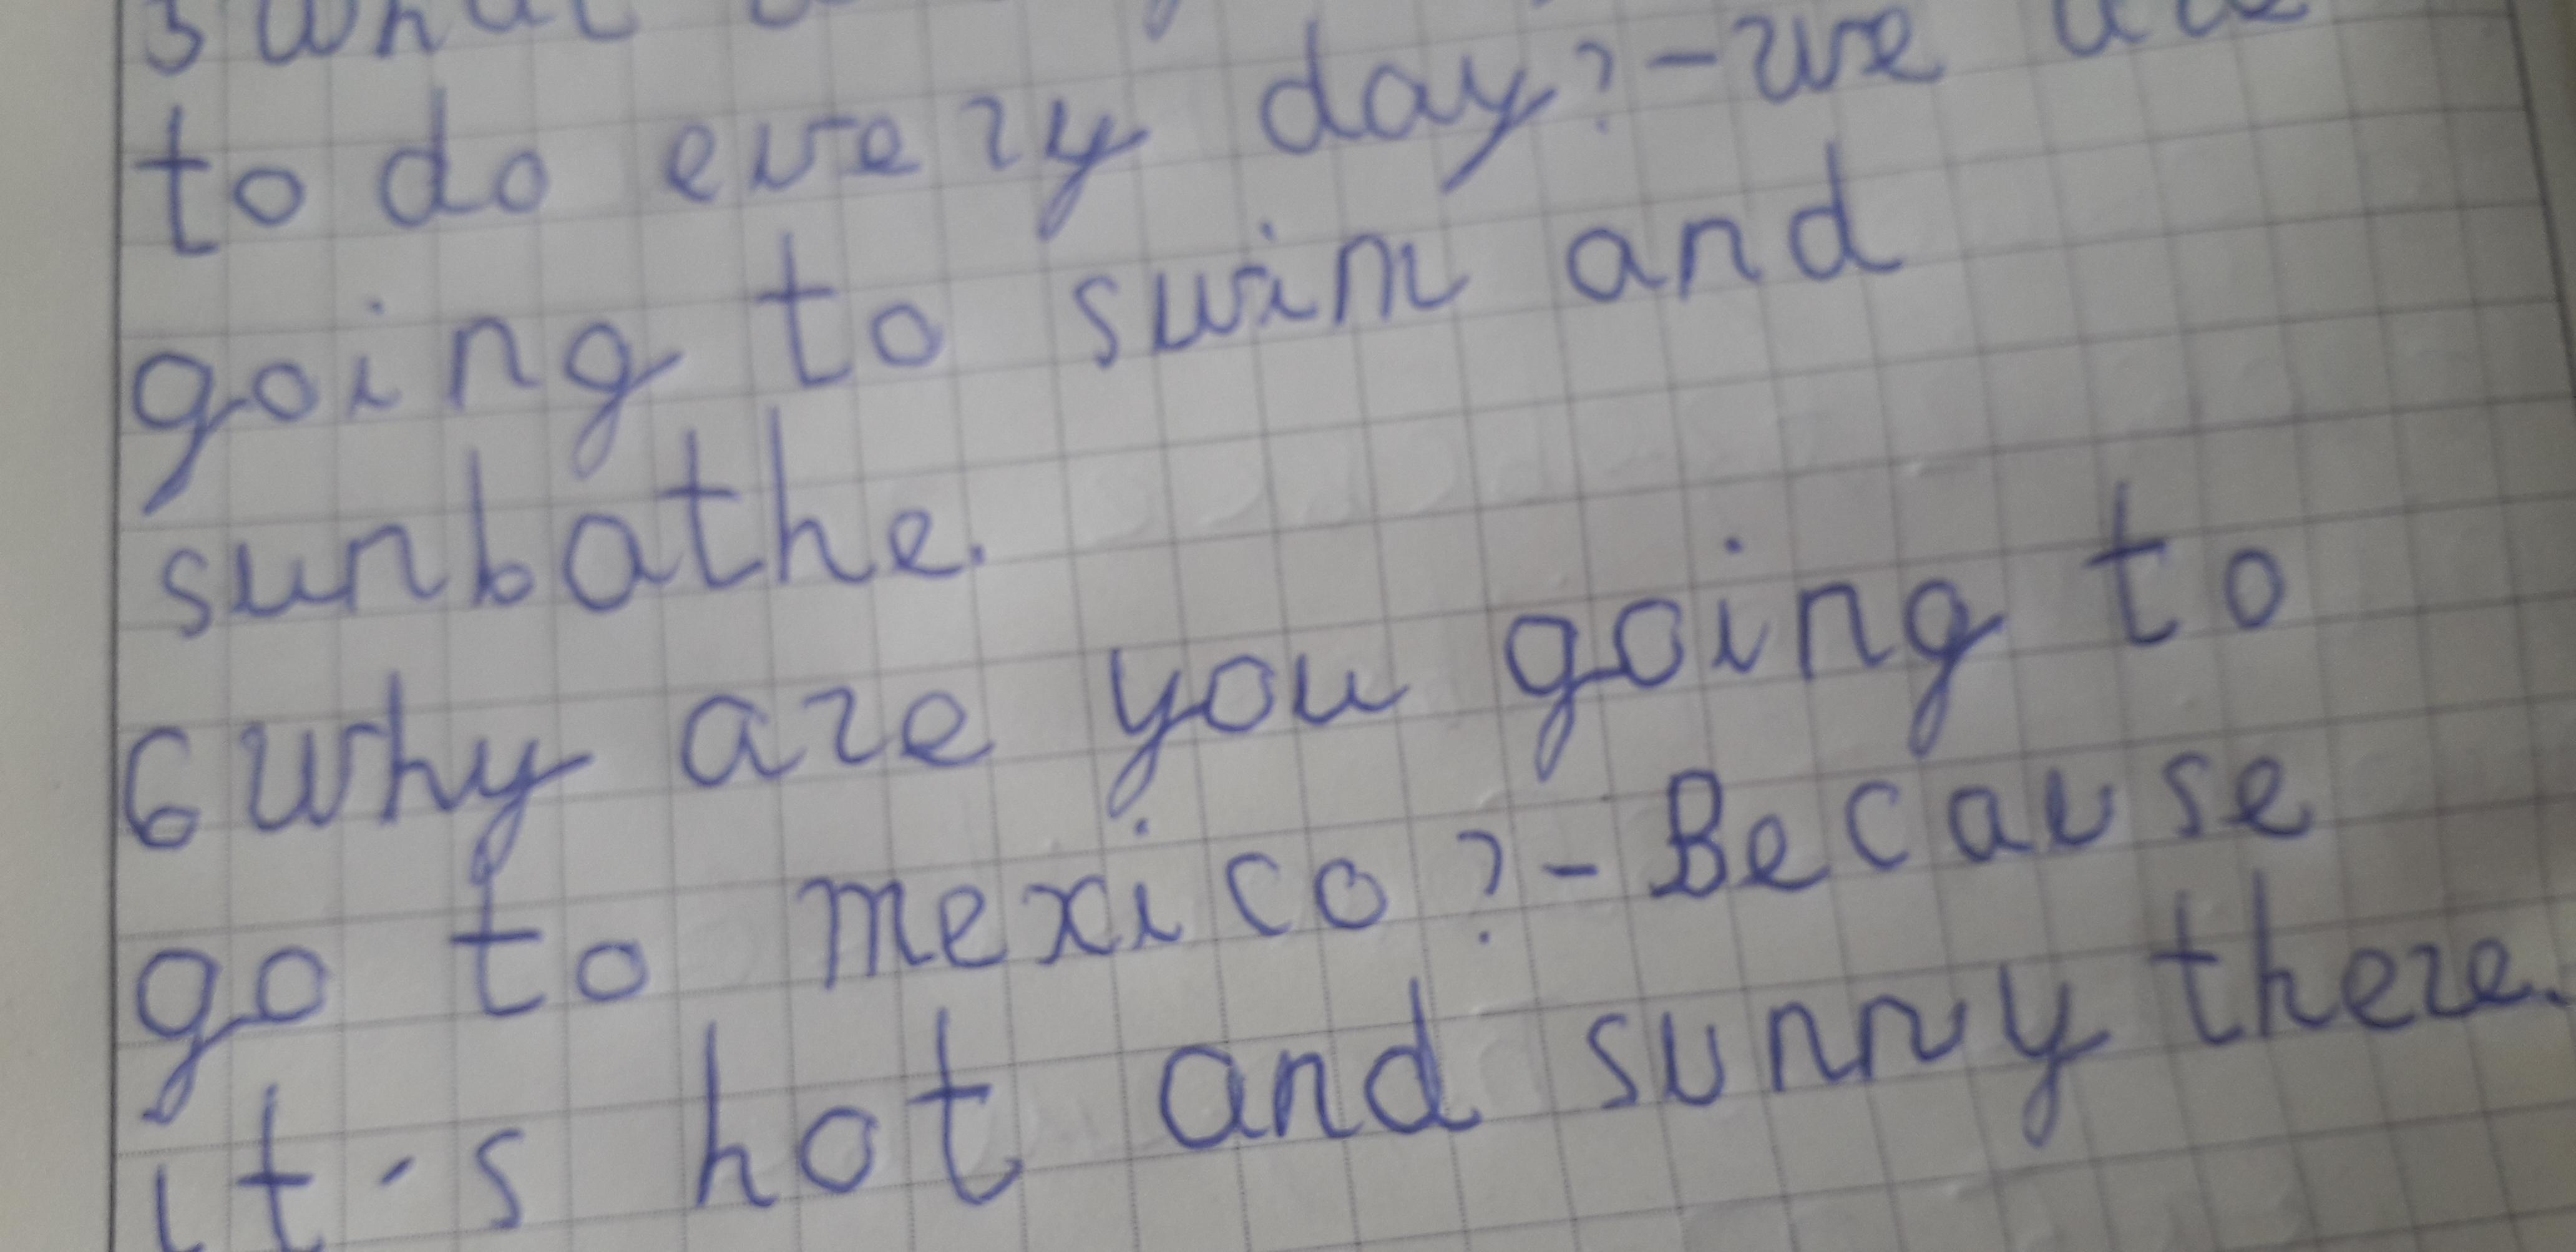 5 what
to do every day? - we are
going to swim and
sunbathe.
6 why are you going to
go to mexico? - Because
it's hot and sunny there.